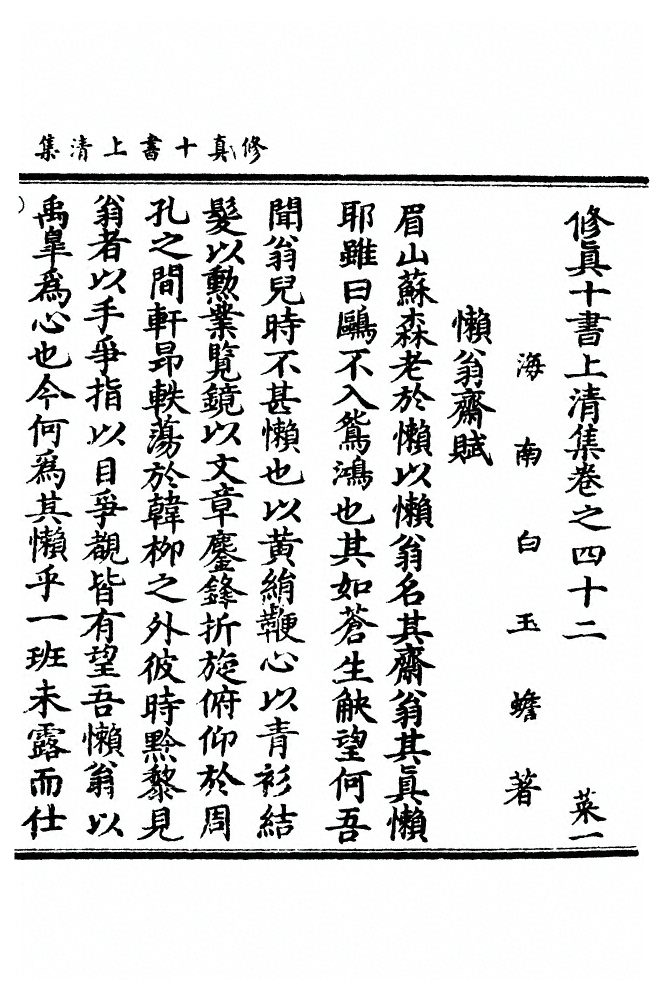 修真十書上清集
修眞十書上清集卷之四十二 菜一
海南白玉蟾著
懶翁齋賦
眉山蘇森老於懶以懶翁名其齋翁其眞懶
耶雖曰鷗不入鴛鴻也其如蒼生觖望何吾
聞翁兒時不甚懶也以黃絹鞭心以青衫結
髮以勳業覽鏡以文章鏖鋒折旋俯仰於周
孔之間軒昂軼蕩於韓柳之外彼時黔黎見
翁者以手爭指以目爭覩皆有望吾懶翁以
禹皐爲心也今何爲其懶乎一班未露而仕